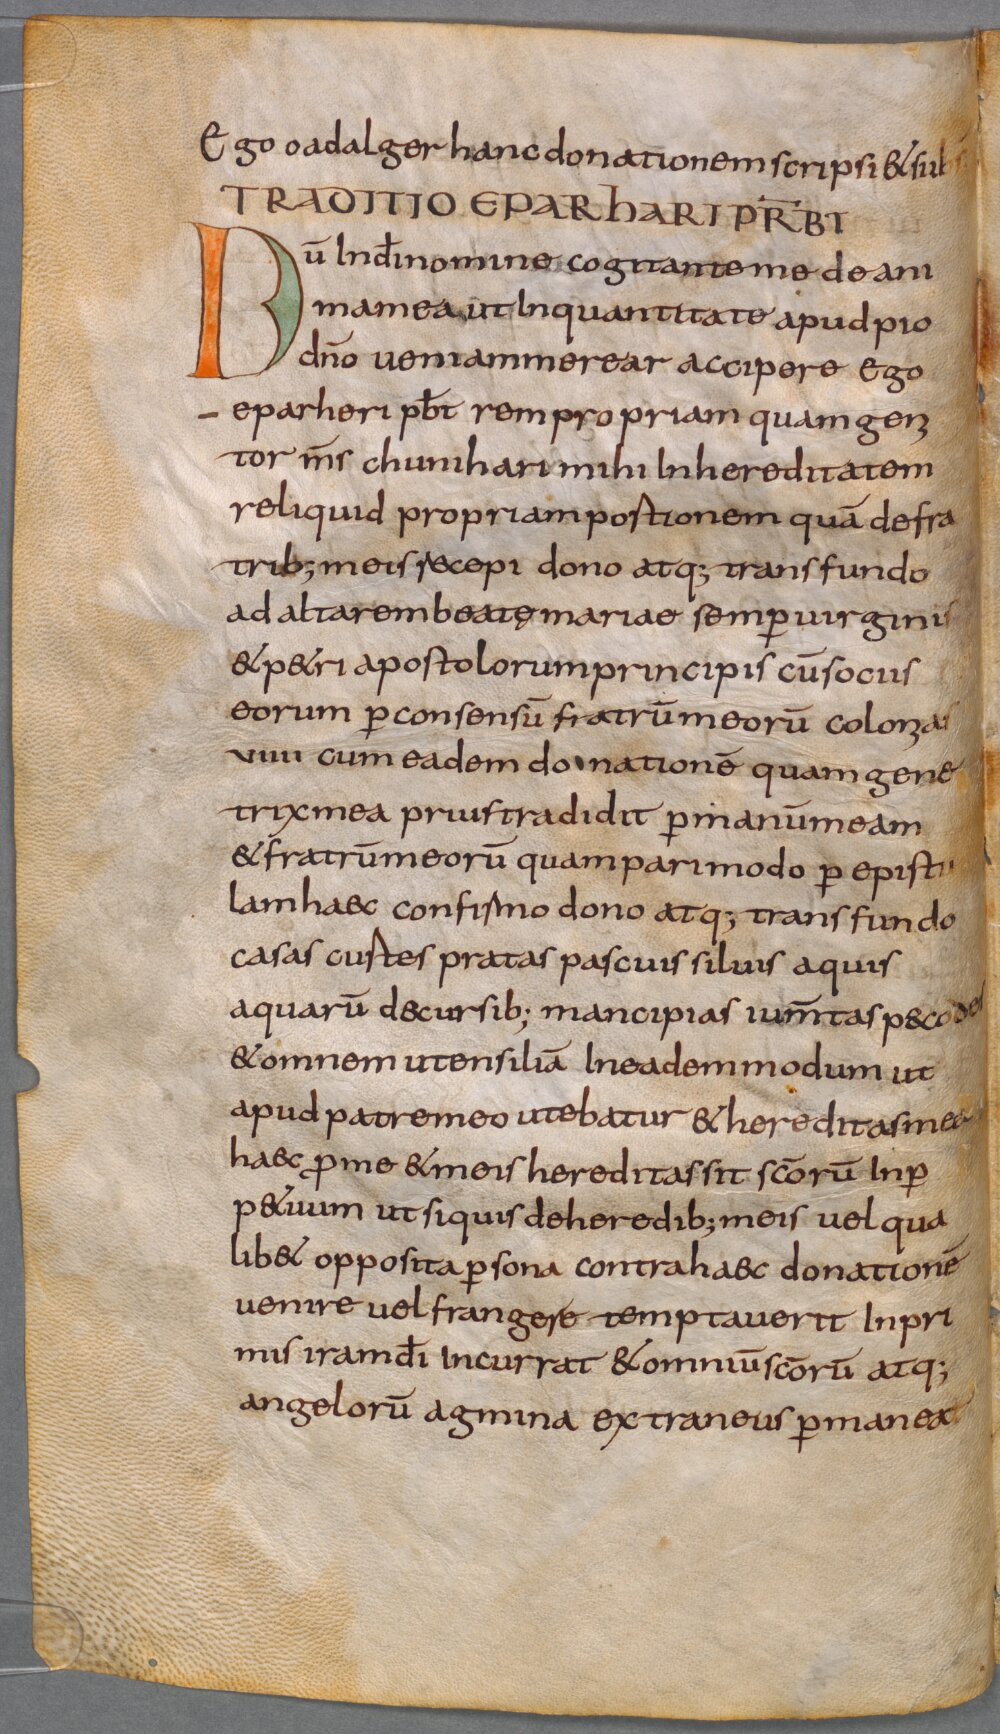 Ego oadalger hanc donationem scripsi & subs
TRADITIO EPARHARI PR̄BI
Dū In dī nomine cogitante me de ani
ma mea ut In quantitate apud pio
dn̄o ueniam merear accipere Ego
eparheri pb̄t rem propriam quam geni
tor m̄s chunihari mihi In hereditatem
reliquid propriam postionem quā de fra
trib; meis recepi dono atq; transfundo
ad altarem beatę mariae semp̄ uirginis
& p&ri apostolorum principis cū sociis
eorum p̄ consensū fratrū meorū colonias
uiiii cum eadem donationē quam gene
trix mea prius tradidit p̄ manū meam
& fratrū meorū quam pari modo p̄ epistu
lam haec confirmo dono atq; transfundo
casas custes pratas pascuis siluis aquis
aquarū decursib; mancipias ium̄tas pecodes
& omnem utensiliā In eadem modum ut
apud patre meo utebatur & hereditas mea
haec p̄ me & meis hereditas sit sc̄orū In p̄
p&uum ut si quis de heredib; meis uel qua
lib& opposita p̄sona contra haec donationē
uenire uel frangere temptauerit In pri
mis iram dī Incurrat & omniū sc̄orū atq;
angelorū agmina extraneus p̄maneat